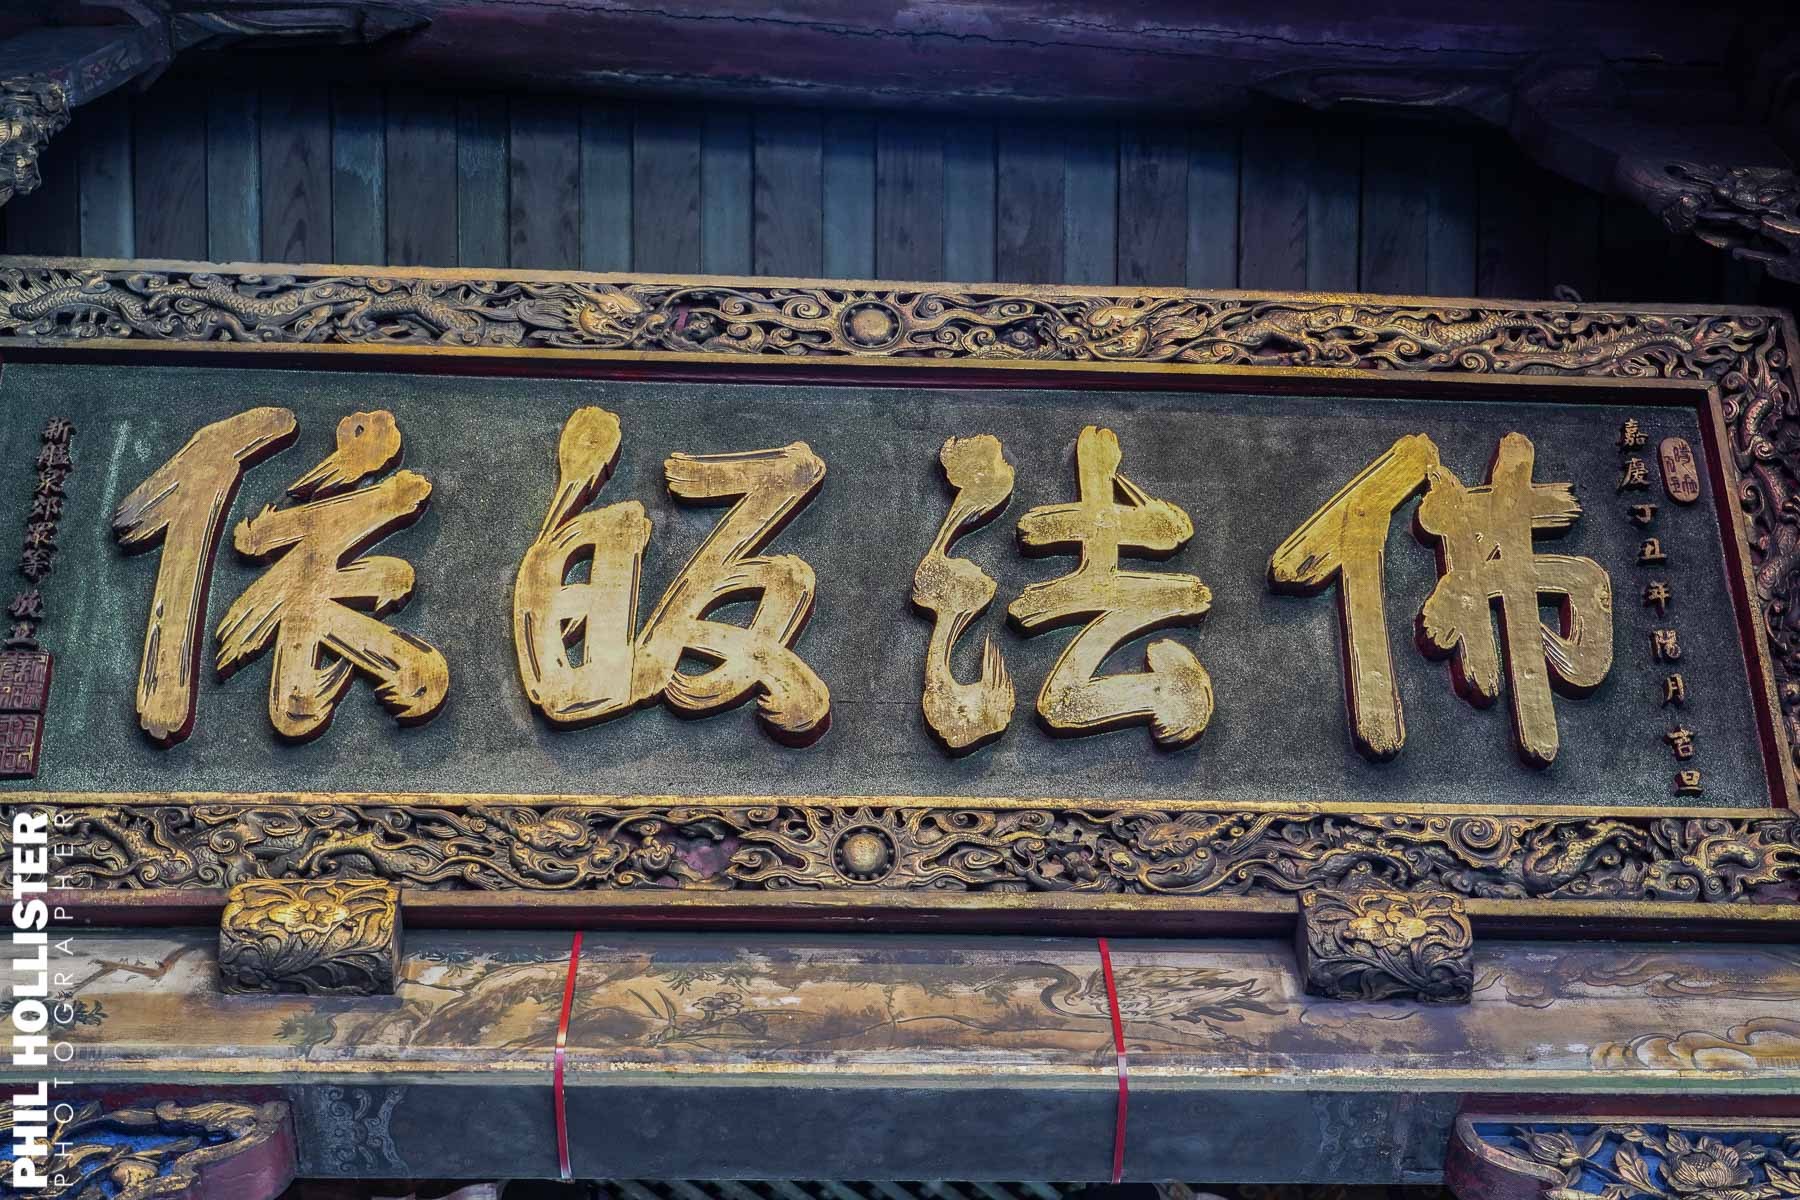 嘉慶丁丑年陽月吉旦
佛法皈依
新艋泉郊眾等敬立
PHIL HOLLISTER
PHOTOGRAPHER